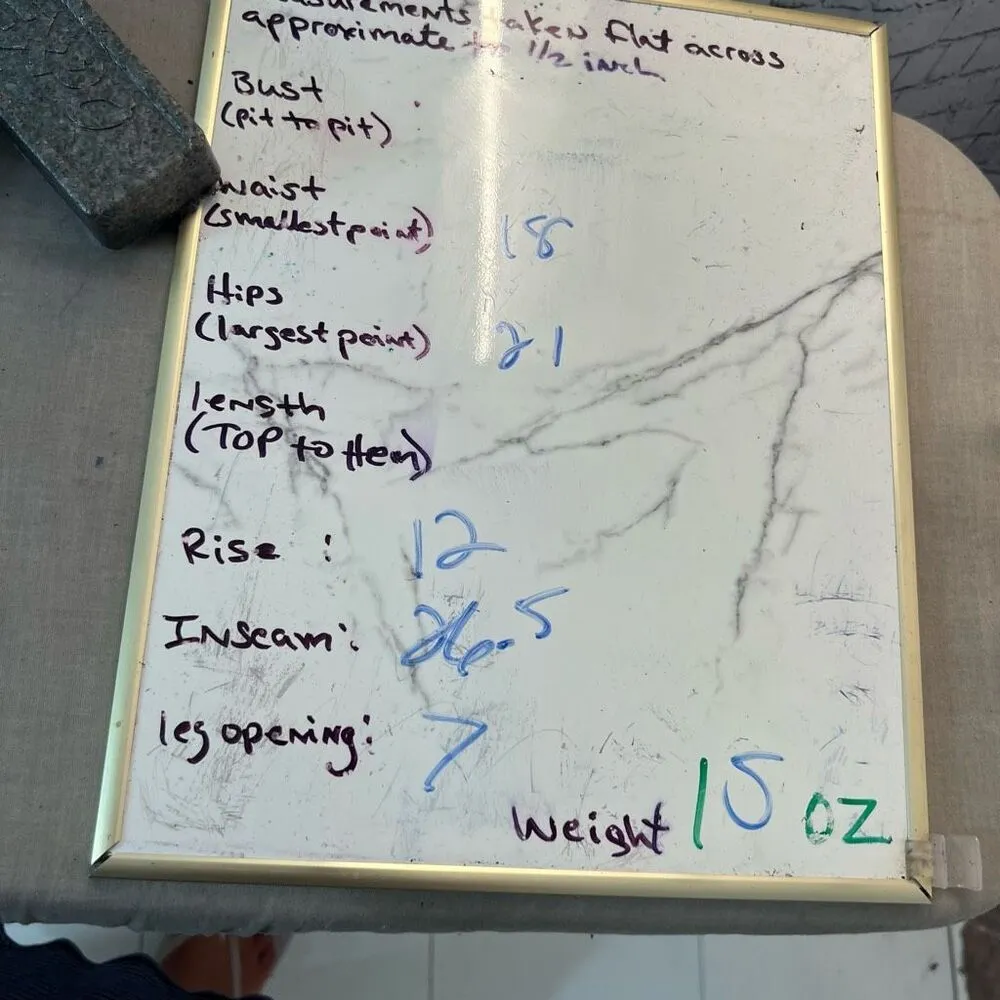 asurements taken flat across
approximate to 1/2 inch
Bust
(pit to pit)
Waist
(smallest point) 18
Hips
(largest point) 21
length
(TOP to Hem)
Rise : 12
Inseam: 26.5
leg opening: 7
Weight 15 oz